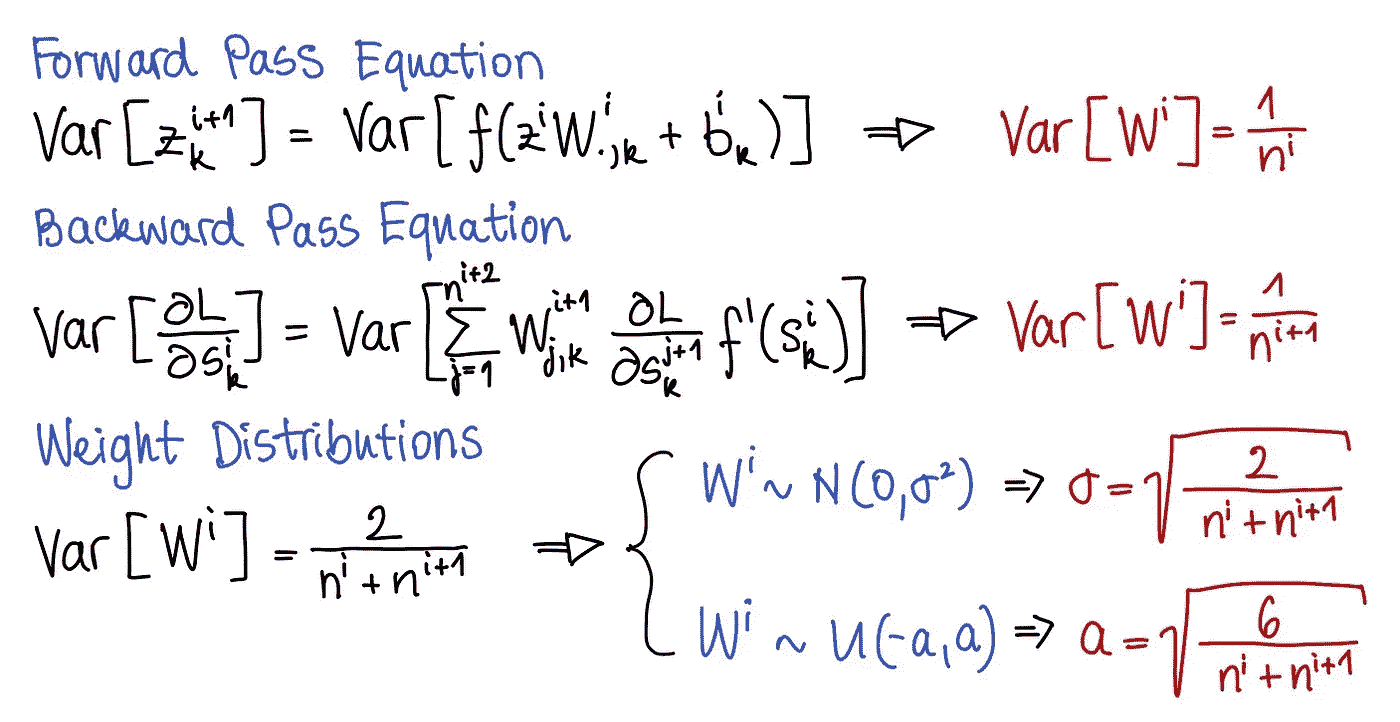 Forward Pass Equation
Var[z_k^{i+1}] = Var[f(z^i W^i_{·,k} + b^i_k)] ⇒ Var[W^i] = 1/n^i
Backward Pass Equation
Var[∂L/∂s^i_k] = Var[∑_{j=1}^{n^{i+2}} W^{i+1}_{j,k} ∂L/∂s^{j+1}_k f'(s^i_k)] ⇒ Var[W^i] = 1/n^{i+1}
Weight Distributions
Var[W^i] = 2/(n^i + n^{i+1}) ⇒ {
W^i ~ N(0,σ²) ⇒ σ = √(2/(n^i + n^{i+1}))
W^i ~ U(-a,a) ⇒ a = √(6/(n^i + n^{i+1}))